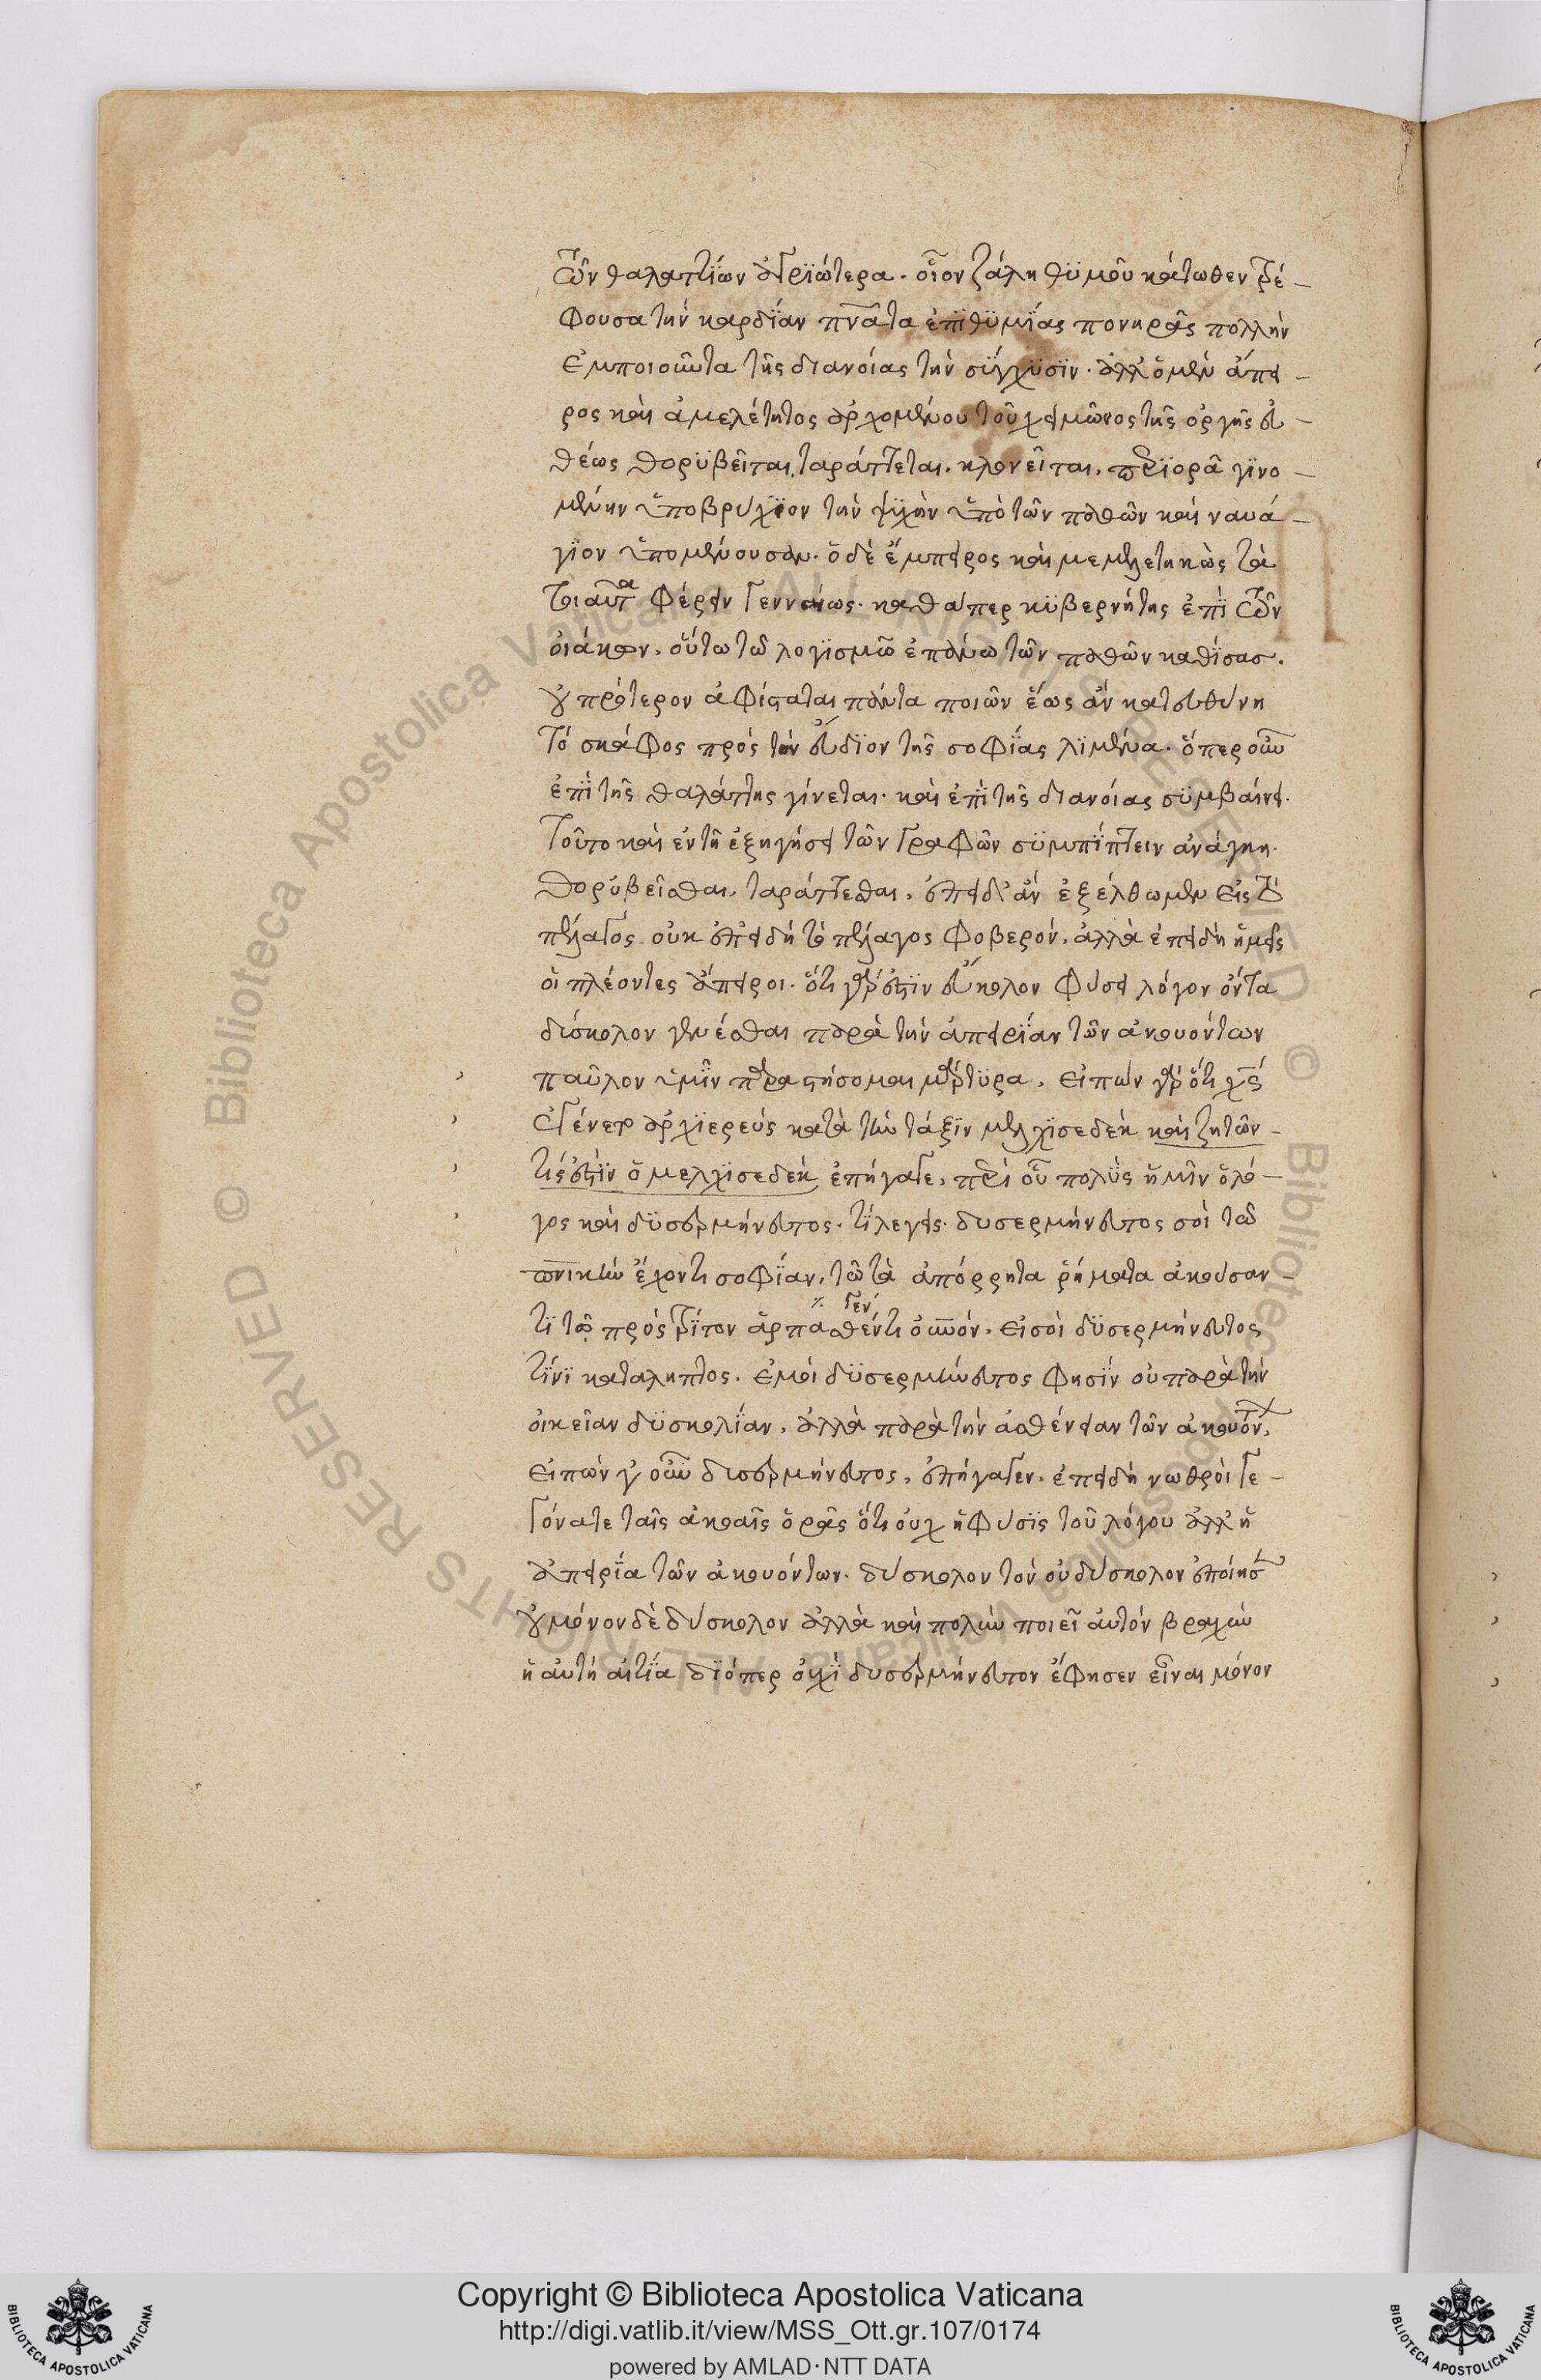 τῶν θαλαττίων ἀγριώτερα. οἷον ζάλη θϋμοῦ κάτωθεν τρέ-
φουσα τὴν καρδΐαν πνᾶτα ἐπϊθϋμΐας πονηρᾶς πολλὴν
ἐμποιοῦντα τῆς διανοίας τὴν σϋγχϋσϊν. ἀλλ' ὁ μὲν ἄπει-
ρος καὶ ἀμελέτητος ἀρχομένου τοῦ χειμῶνος τῆς ὀργῆς εὐ-
θέως θορϋβεῖται, ταράττεται, κλονεῖται, περϊορᾶ γϊνο-
μένην ὑποβρύχϊον τὴν ψϋχὴν ὑπὸ τῶν παθῶν καὶ ναυά-
γϊον ὑπομένουσαν. ὁ δὲ ἔμπειρος καὶ μεμελετηκὼς τὰ
τοιαῦτα φέρειν γενναίως. καθάπερ κϋβερνήτης ἐπΐ τῶν
οἰάκων, οὕτω τῶ λογϊσμῶ ἐπάνω τῶν παθῶν καθΐσας.
οὐ πρότερον ἀφίσταται πάντα ποιῶν ἕως ἂν κατευθύνη
τὸ σκάφος πρὸς τὸν εὔδϊον τῆς σοφΐας λϊμένα. ὅπερ οὖν
ἐπΐ τῆς θαλάττης γίνεται. καὶ ἐπΐ τῆς διανοίας σϋμβαίνει.
τοῦτο καὶ ἐν τῆ ἐξηγήσει τῶν γραφῶν σϋμπΐπτειν ἀνάγκη.
θορϋβεῖσθαι, ταράττεσθαι, ἐπειδ' ἂν ἐξέλθωμεν εἰς τὸ
πέλαγος οὐκ ἐπειδὴ τὸ πέλαγος φοβερόν, ἀλλὰ ἐπειδὴ ἡμεῖς
οἱ πλέοντες ἄπειροι. ὅτι γάρ ἐστϊν εὔκολον φύσει λόγον ὄντα
δύσκολον γενέσθαι παρὰ τὴν ἀπειρΐαν τῶν ἀκουόντων
παῦλον ὑμῖν παραστήσομαι μάρτϋρα. εἰπὼν γάρ ὅτι χς
ἐγένετο ἀρχϊερεὺς κατὰ τὴν τάξϊν μελχϊσεδὲκ καὶ ζητῶν
τίς ἐστὶν ὁ μελχϊσεδὲκ ἐπήγαγε, περὶ οὗ πολϋς ἡμῖν ὁ λό-
γος καὶ δϋσερμήνευτος. τΐ λέγεις. δυσερμήνευτος σοὶ τῶ
πνικὴν ἔχοντι σοφΐαν, τῶ τὰ ἀπόρρητα ῥήματα ἀκούσαν-
τϊ τῶ πρὸς τρΐτον ἁρπαγέντι οὐνόν. εἰ σοὶ δϋσερμήνευτος
τΐνϊ καταληπτος. ἐμοὶ δϋσερμήνευτος φησΐν οὐ παρὰ τὴν
οἰκεῖαν δϋσκολΐαν, ἀλλὰ παρὰ τὴν ἀσθένειαν τῶν ἀκουόντ,
εἰπὼν γ οὖν δισερμήνευτος, ἐπήγαγεν, ἐπειδὴ νωθροὶ γε-
γόνατε ταῖς ἀκοαῖς ὁρᾶς ὅτι οὐχ ἡ φυσϊς τοῦ λόγου ἀλλ' ἡ
ἀπειρΐα τῶν ἀκουόντων. δύσκολον τὸν οὐ δύσκολον ἐποίησ
οὐ μόνον δὲ δύσκολον ἀλλὰ καὶ πολὺν ποιεῖ αὐτὸν βραχὺν
ἡ αὐτὴ αἰτΐα δϊόπερ οὐχΐ δυσερμήνευτον ἔφησεν εἶναι μόνον
Copyright © Biblioteca Apostolica Vaticana
http://digi.vatlib.it/view/MSS_Ott.gr.107/0174
powered by AMLAD·NTT DATA